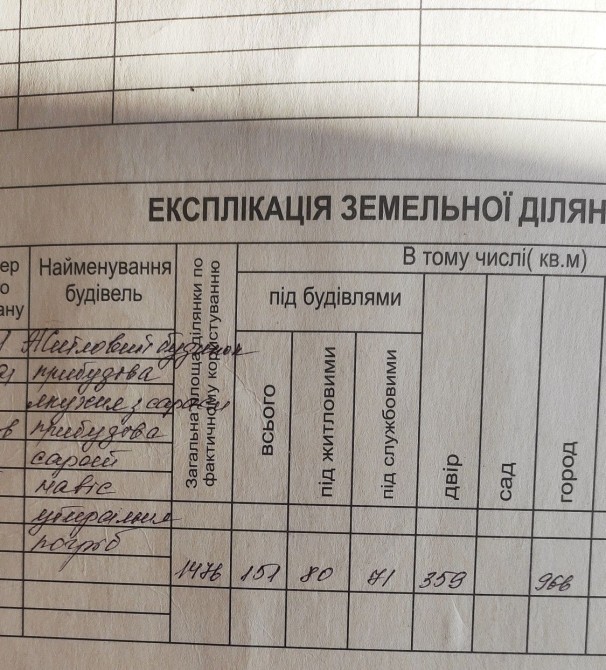 ЕКСПЛІКАЦІЯ ЗЕМЕЛЬНОЇ ДІЛЯН
ер
о
ану
Найменування
будівель
Загальна площа ділянки по
фактичному користуванню
В тому числі( кв.м)
під будівлями
всього
під житловими
під службовими
двір
сад
город
Житловий будинок
прибудова
з сараєм
в прибудова
сарай
навіс
убиральня
погріб
1476 151 80 71 359 966